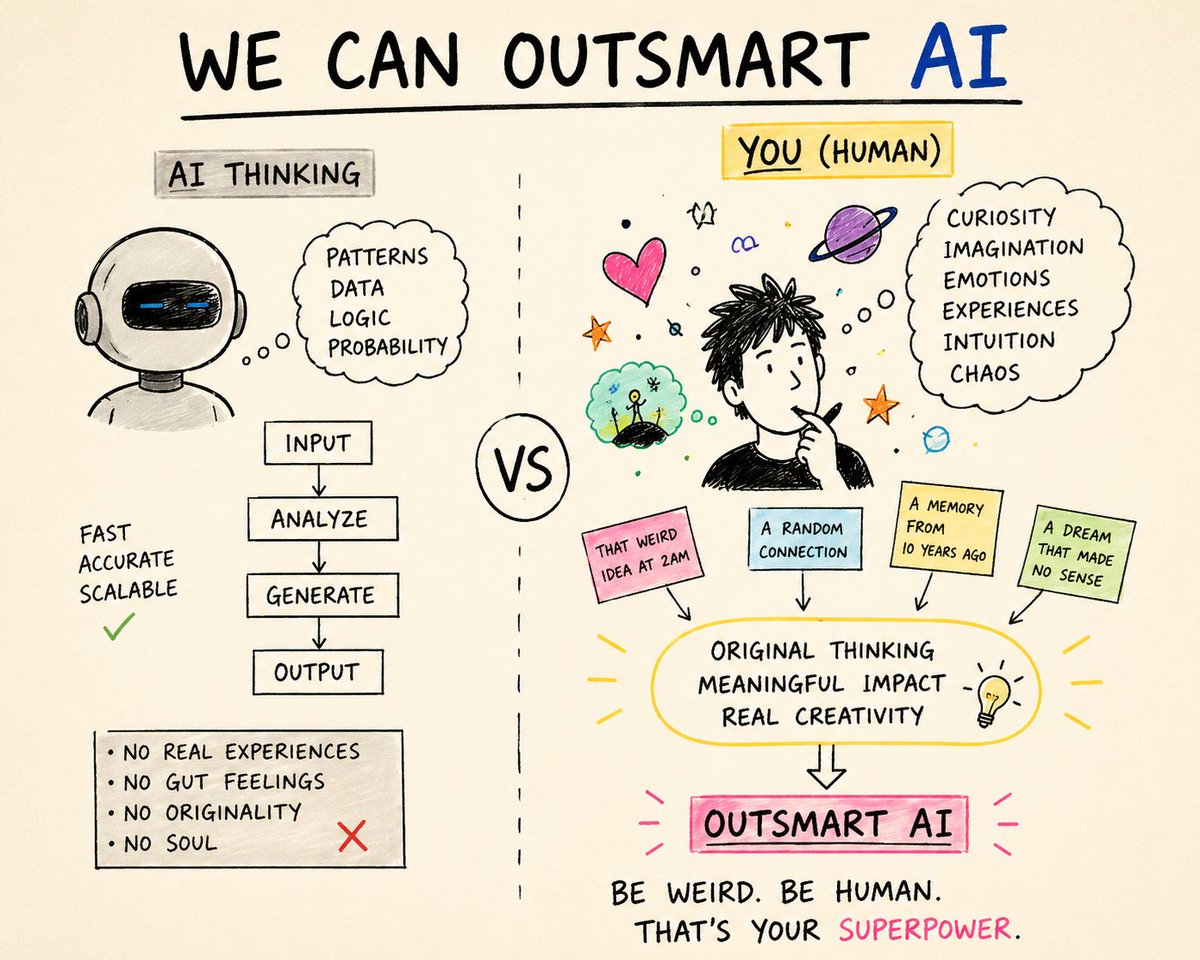 WE CAN OUTSMART AI
AI THINKING
PATTERNS
DATA
LOGIC
PROBABILITY
INPUT
ANALYZE
GENERATE
OUTPUT
FAST
ACCURATE
SCALABLE
• NO REAL EXPERIENCES
• NO GUT FEELINGS
• NO ORIGINALITY
• NO SOUL
VS
YOU (HUMAN)
CURIOSITY
IMAGINATION
EMOTIONS
EXPERIENCES
INTUITION
CHAOS
THAT WEIRD
IDEA AT 2AM
A RANDOM
CONNECTION
A MEMORY
FROM
10 YEARS AGO
A DREAM
THAT MADE
NO SENSE
ORIGINAL THINKING
MEANINGFUL IMPACT
REAL CREATIVITY
OUTSMART AI
BE WEIRD. BE HUMAN.
THAT'S YOUR SUPERPOWER.